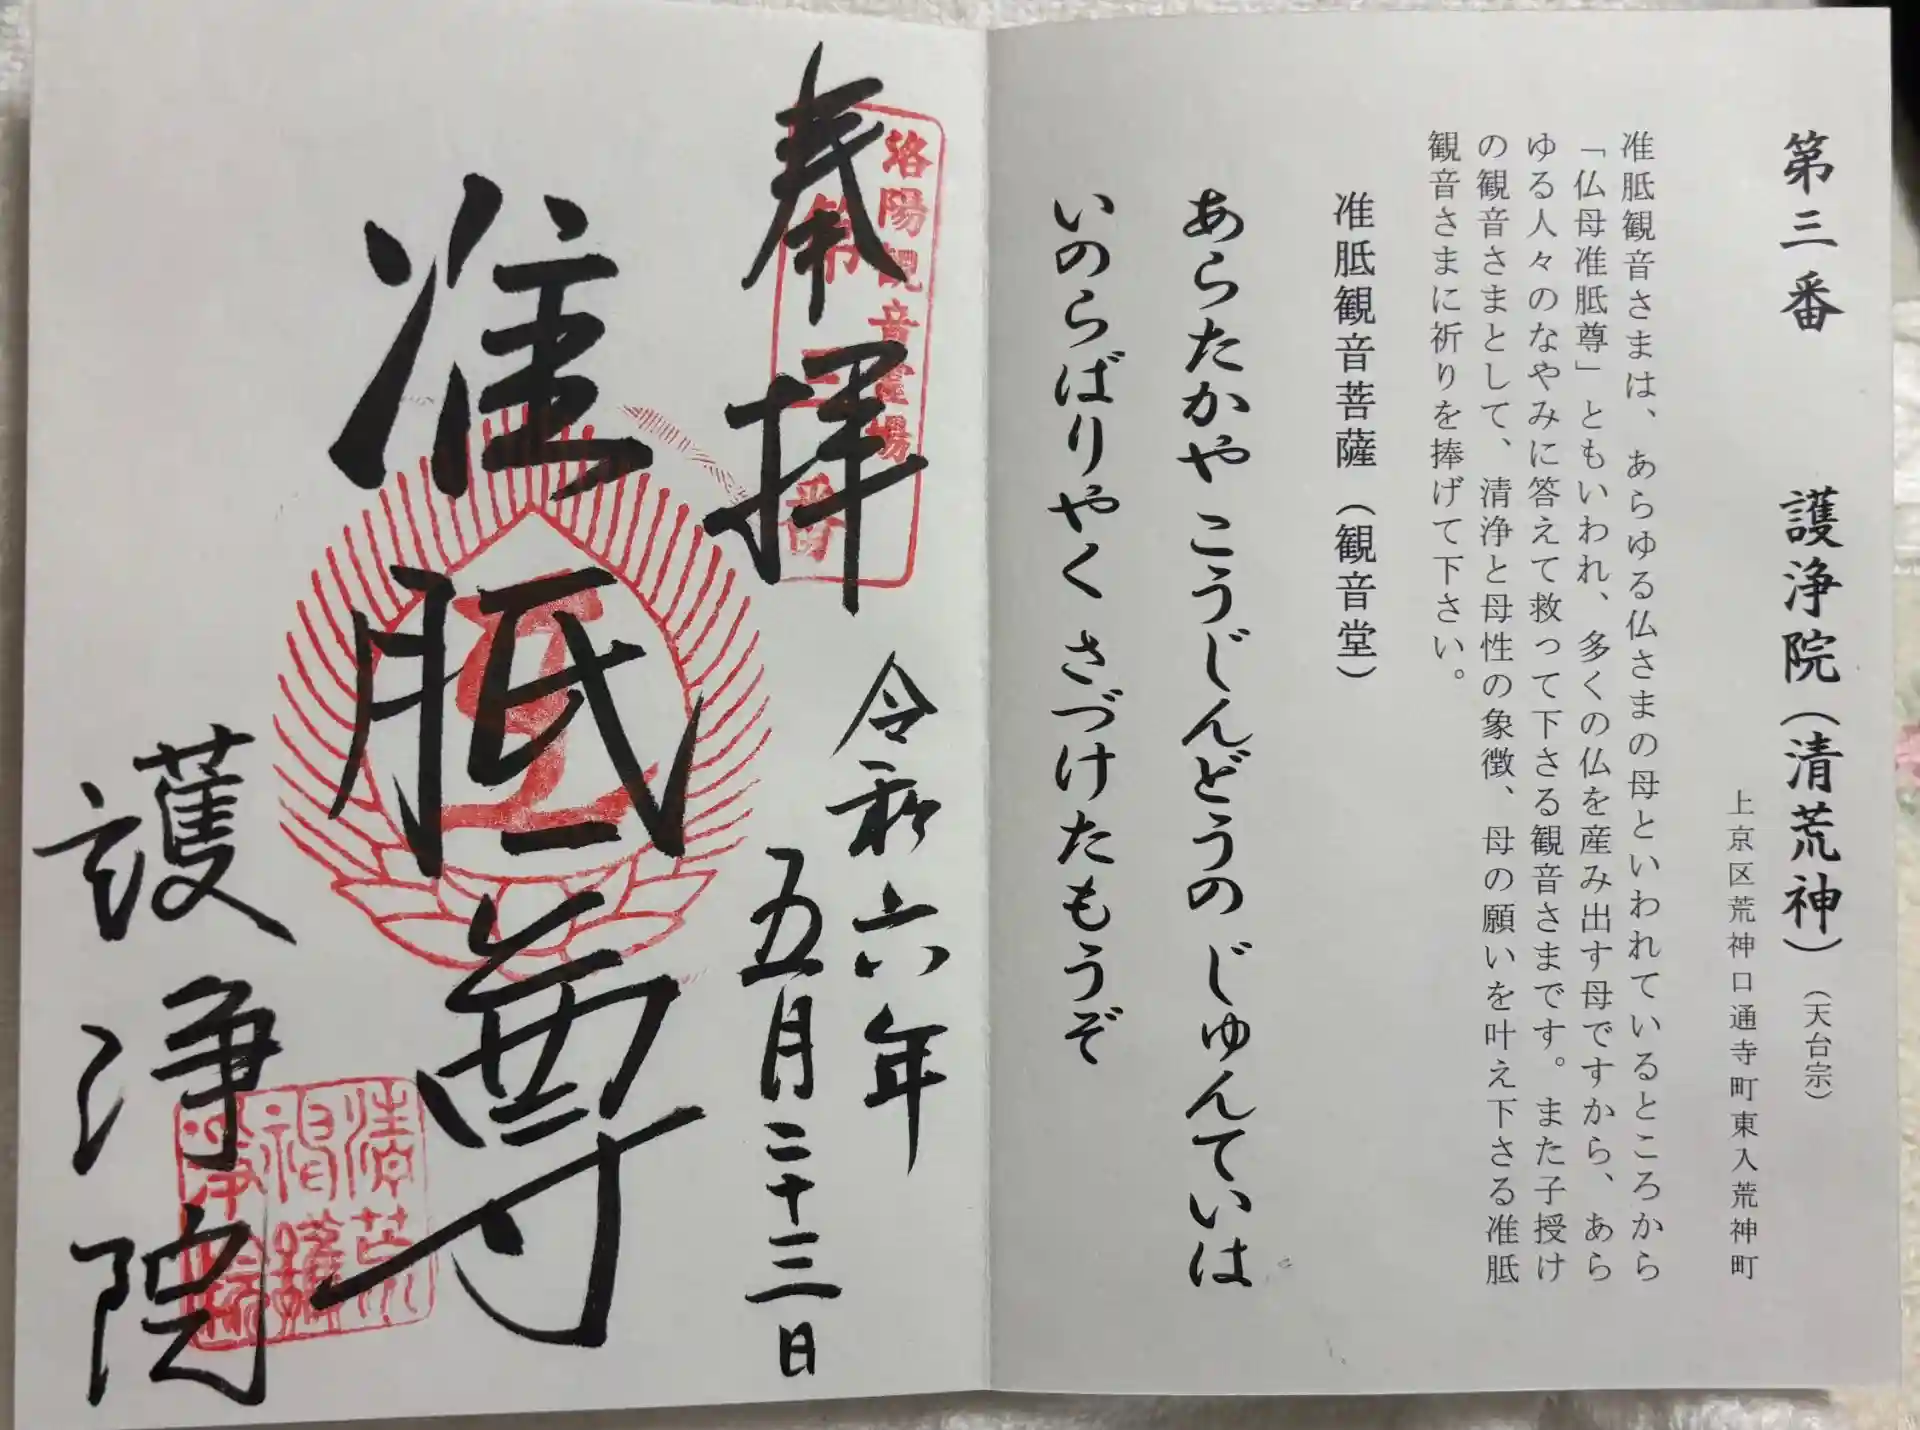 第三番　護浄院（清荒神）（天台宗）
上京区荒神口通寺町東入荒神町
准胝観音さまは、あらゆる仏さまの母といわれているところから
「仏母准胝尊」ともいわれ、多くの仏を産み出す母ですから、あら
ゆる人々のなやみに答えて救って下さる観音さまです。また子授け
の観音さまとして、清浄と母性の象徴、母の願いを叶え下さる准胝
観音さまに祈りを捧げて下さい。
准胝観音菩薩（観音堂）
あらたかや こうじんどうの じゅんていは
いのらばりやく さづけたもうぞ
奉拝
洛陽観音霊場
第三番
令和六年
五月二十三日
准胝尊
護浄院